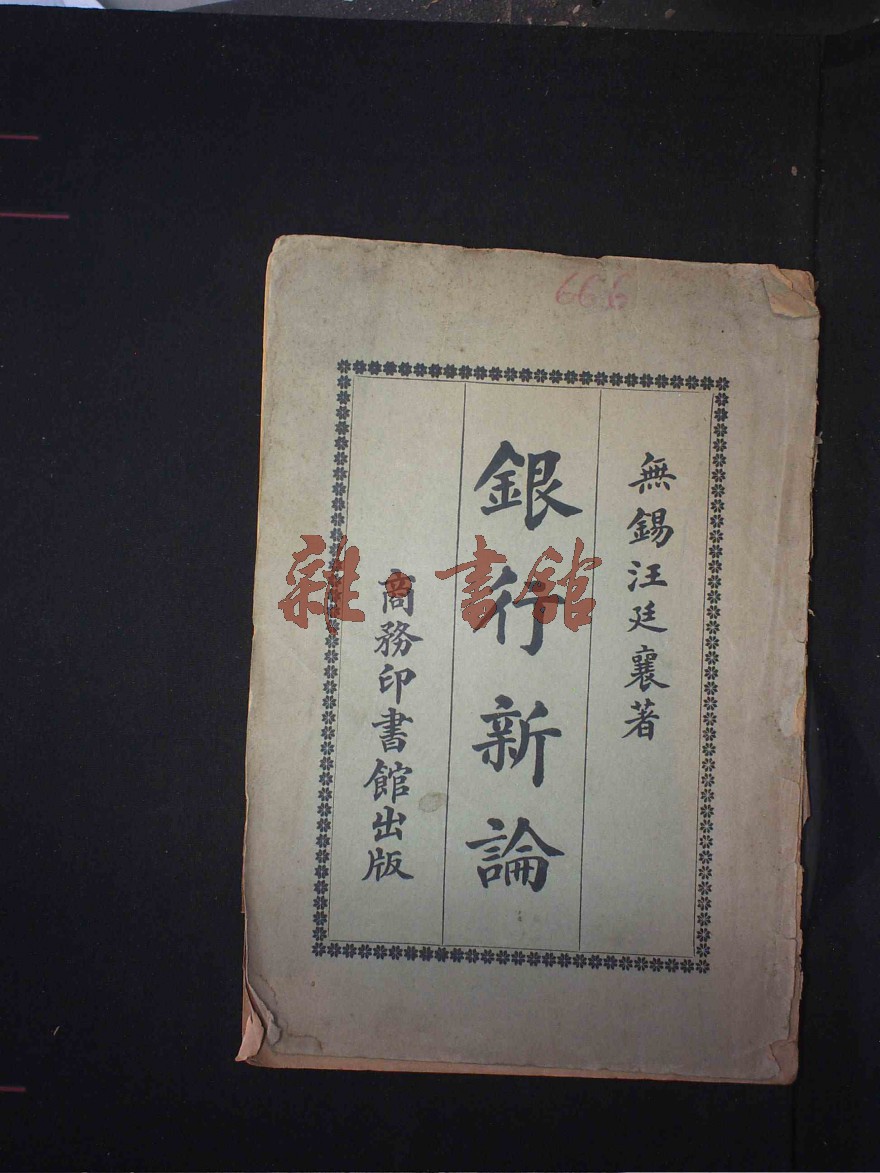 666
無錫汪廷襄著
銀行新論
商務印書館出版
雜書館